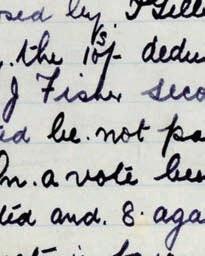 osed by. J Gill
. the 10/- dedu
J Fisher seco
ed be. not pa
n. a vote bei
ted and. 8. aga